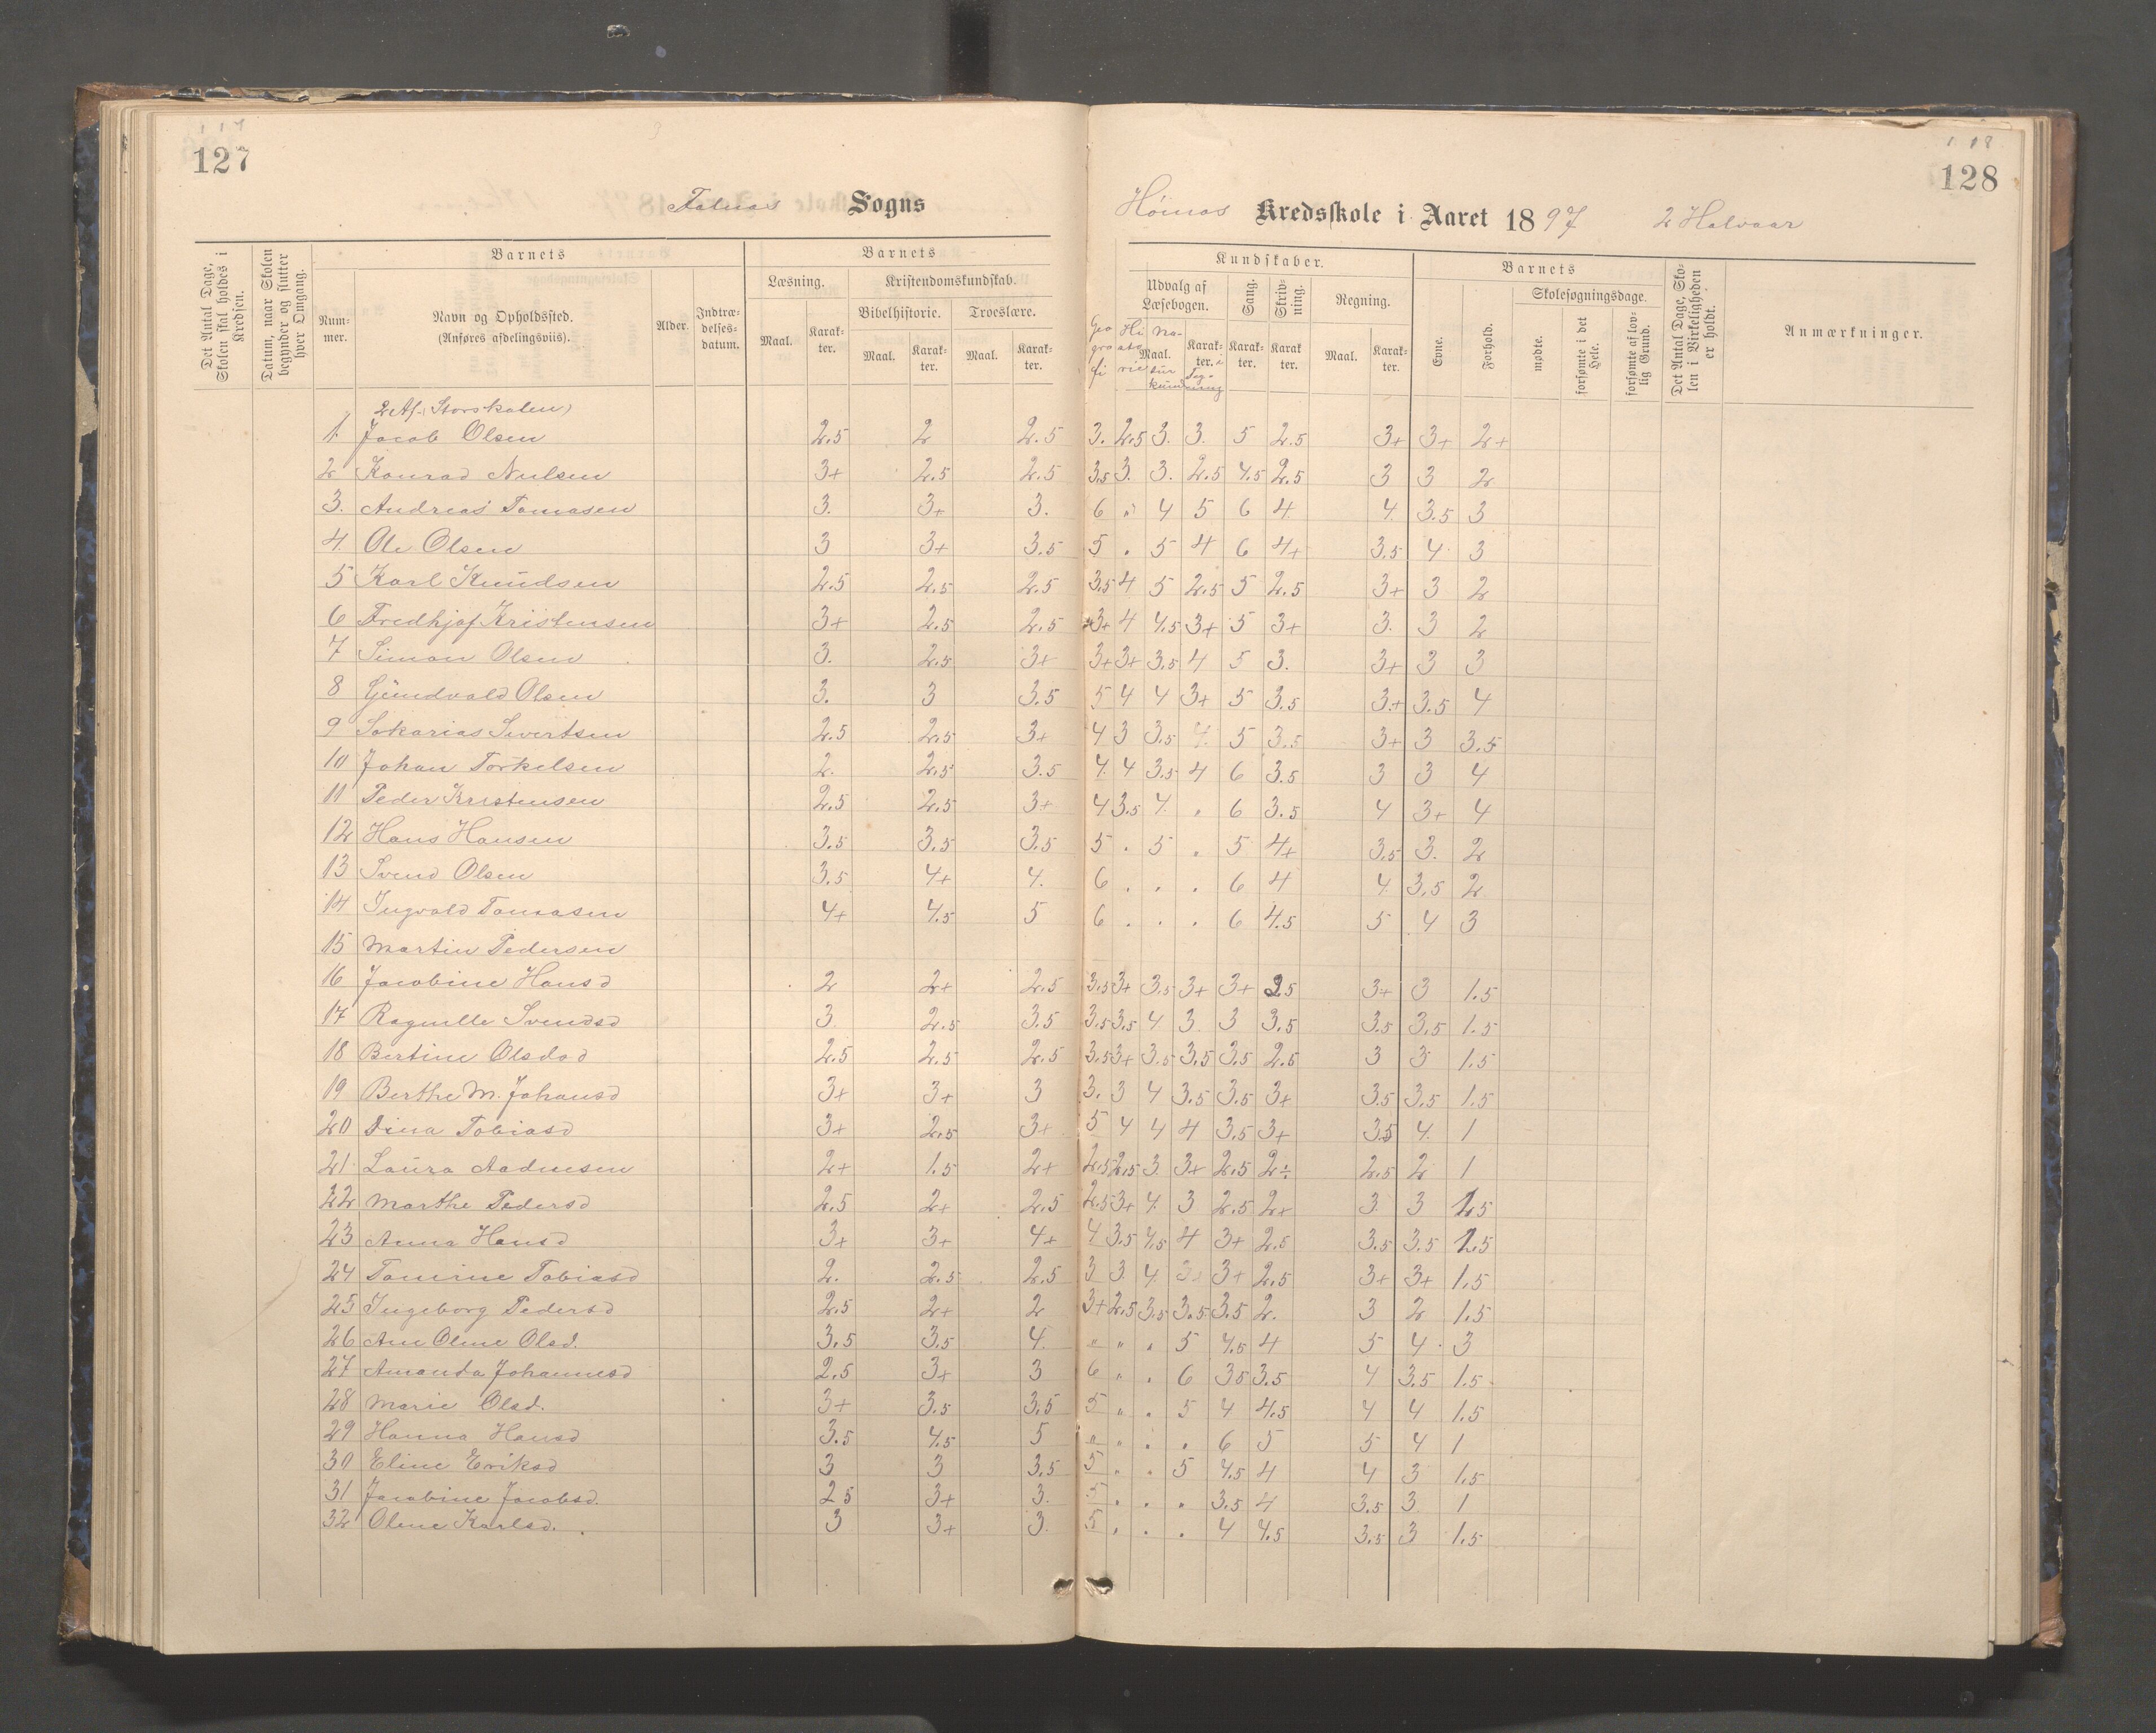 117
127
Falnes Sogns
118
128
Høinæs Kredsskole i Aaret 1897 2 Halvaar
Det Antal Dage, Skolen skal holdes i Kredsen.
Datum, naar Skolen begynder og slutter hver Omgang.
Barnets
Nummer.
Navn og Opholdssted.
(Anføres afdelingsviis).
Alder.
Indtrædelsesdatum.
Barnets
Læsning.
Kristendomskundskab.
Bibelhistorie.
Troeslære.
Maal. Karakter. Maal. Karakter. Maal. Karakter.
Kundskaber.
Udvalg af Læsebogen.
Sang.
Skrivning.
Regning.
Geografi Historie Naturkund Tegning
Maal. Karakter. Karakter. Karakter. Maal. Karakter.
Barnets
Evne.
Forhold.
Skolesøgningsdage.
mødte.
forsømte i det Hele.
forsømte af lovlig Grund.
Det Antal Dage, Skolen i Virkeligheden er holdt.
Anmærkninger.
2 Af. (Storskolen)
1. Jacob Olsen 2.5 2 2.5 3. 2.5 3. 3. 5 2.5 3+ 3+ 2+
2 Konrad Nilsen 3+ 2.5 2.5 3.5 3. 3. 2.5 4.5 2.5 3 3 2
3. Andreas Tomasen 3. 3+ 3. 6 " 4 5 6 4 4. 3.5 3
4. Ole Olsen 3 3+ 3.5 5 . 5 4 6 4+ 3.5 4. 3
5 Karl Knudsen 2.5 2.5 2.5 3.5 4 5 2.5 5 2.5 3+ 3 2
6 Fredhjof Kristensen 3+ 2.5 2.5 3+ 4 4.5 3+ 5 3+ 3. 3 2
7 Simon Olsen 3. 2.5 3+ 3+ 3+ 3.5 4 5 3. 3+ 3 3
8 Gundvald Olsen 3. 3 3.5 5 4 4 3+ 5 3.5 3+ 3.5 4
9 Sakarias Sivertsen 2.5 2.5 3+ 4 3 3.5 4. 5 3.5 3+ 3 3.5
10 Johan Torkelsen 2. 2.5 3.5 4. 4 3.5 4 6 3.5 3 3 4
11 Peder Kristensen 2.5 2.5 3+ 4 3.5 4. . 6 3.5 4 3+ 4
12 Hans Hansen 3.5 3.5 3.5 5 . 5 . 5 4+ 3.5 3. 2
13 Svend Olsen 3.5 4+ 4. 6 . . . 6 4 4. 3.5 2
14 Ingvald Tomasen 4+ 4.5 5 6 . . . 6 4.5 5 4 3
15 Martin Pedersen
16 Jacobine Hansd 2 2+ 2.5 3.5 3+ 3.5 3+ 3+ 2.5 3+ 3 1.5
17 Ragnille Svendsd 3 2.5 3.5 3.5 3.5 4 3 3 3.5 3.5 3.5 1.5
18 Bertine Olsdad 2.5 2.5 2.5 3.5 3+ 3.5 3.5 3.5 2.5 3 3 1.5
19 Berthe M. Johansd 3+ 3+ 3 3. 3 4 3.5 3.5 3+ 3.5 3.5 1.5
20 Dina Tobiasd 3+ 2.5 3+ 5 4 4 4 3.5 3+ 3.5 4. 1
21 Laura Aadnesen 2+ 1.5 2+ 2.5 2.5 3 3+ 2.5 2÷ 2.5 2 1
22 Marthe Pedersd 2.5 2+ 2.5 2.5 3+ 4. 3 2.5 2+ 3. 3 1.5
23 Anna Hansd 3+ 3+ 4+ 4 3.5 4.5 4 3+ 2.5 3.5 3.5 1.5
24 Tomine Tobiasd 2. 2.5 2.5 3 3. 4. 3+ 3+ 2.5 3+ 3+ 1.5
25 Ingeborg Pedersd 2.5 2+ 2 3+ 2.5 3.5 3.5 3.5 2. 3 2 1.5
26 Ane Oline Olsd. 3.5 3.5 4. " " . 5 4.5 4 5 4 3
27 Amanda Johannesd 2.5 3+ 3 6 " . 6 3.5 3.5 4 3.5 1.5
28 Marie Olsd. 3+ 3.5 3.5 5 " . 5 4 4.5 4 4 1.5
29 Hanna Hansd 3.5 4.5 5 " " . . 6 5 5 4 1
30 Eline Eriksd 3 3 3.5 5 " . 5 4.5 4 4 3 1.5
31 Jacobine Jacobsd. 2 5 3+ 3. 5 . . . 3.5 4 3.5 3 1
32 Oline Karlsd. 3 3+ 3. 5 . . . 4 4.5 3.5 3 1.5